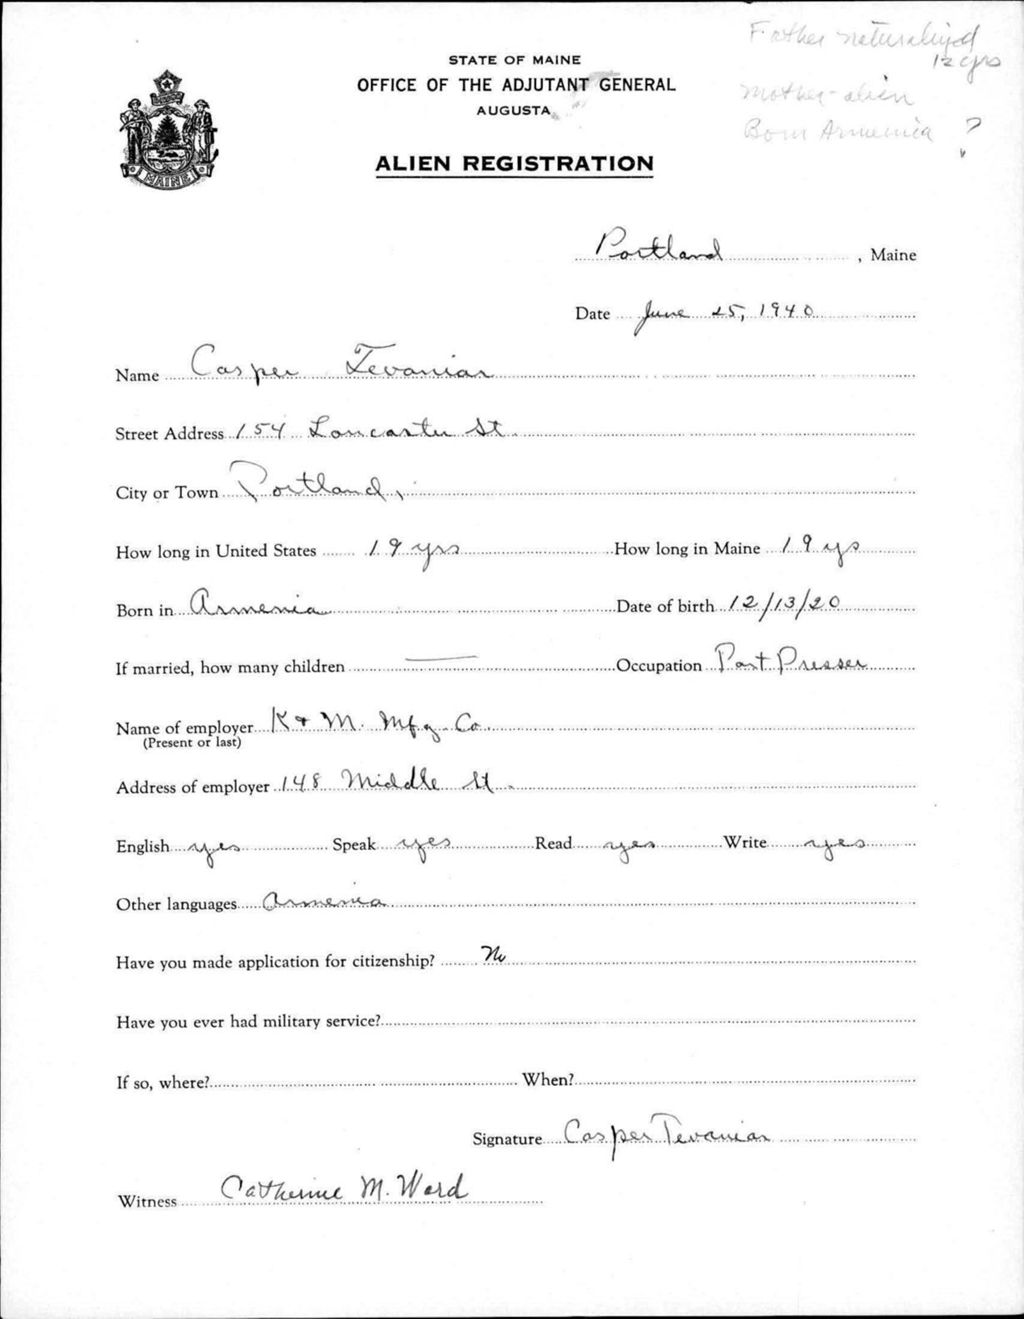 Father naturalized
12 yrs
Mother - alien
Born Armenia ?
STATE OF MAINE
OFFICE OF THE ADJUTANT GENERAL
AUGUSTA
MAINE
ALIEN REGISTRATION
Portland, Maine
Date June 25, 1940
Name Casper Tevanian
Street Address 154 Lancaster St.
City or Town Portland,
How long in United States 19 yrs How long in Maine 19 ys
Born in Armenia Date of birth 12/13/20
If married, how many children — Occupation Part Presser
Name of employer K + M. Mfg. Co.
(Present or last)
Address of employer 148 Middle St.
English yes Speak yes Read yes Write yes
Other languages Armenia
Have you made application for citizenship? No
Have you ever had military service?
If so, where? When?
Signature Casper Tevanian
Witness Catherine M. Ward